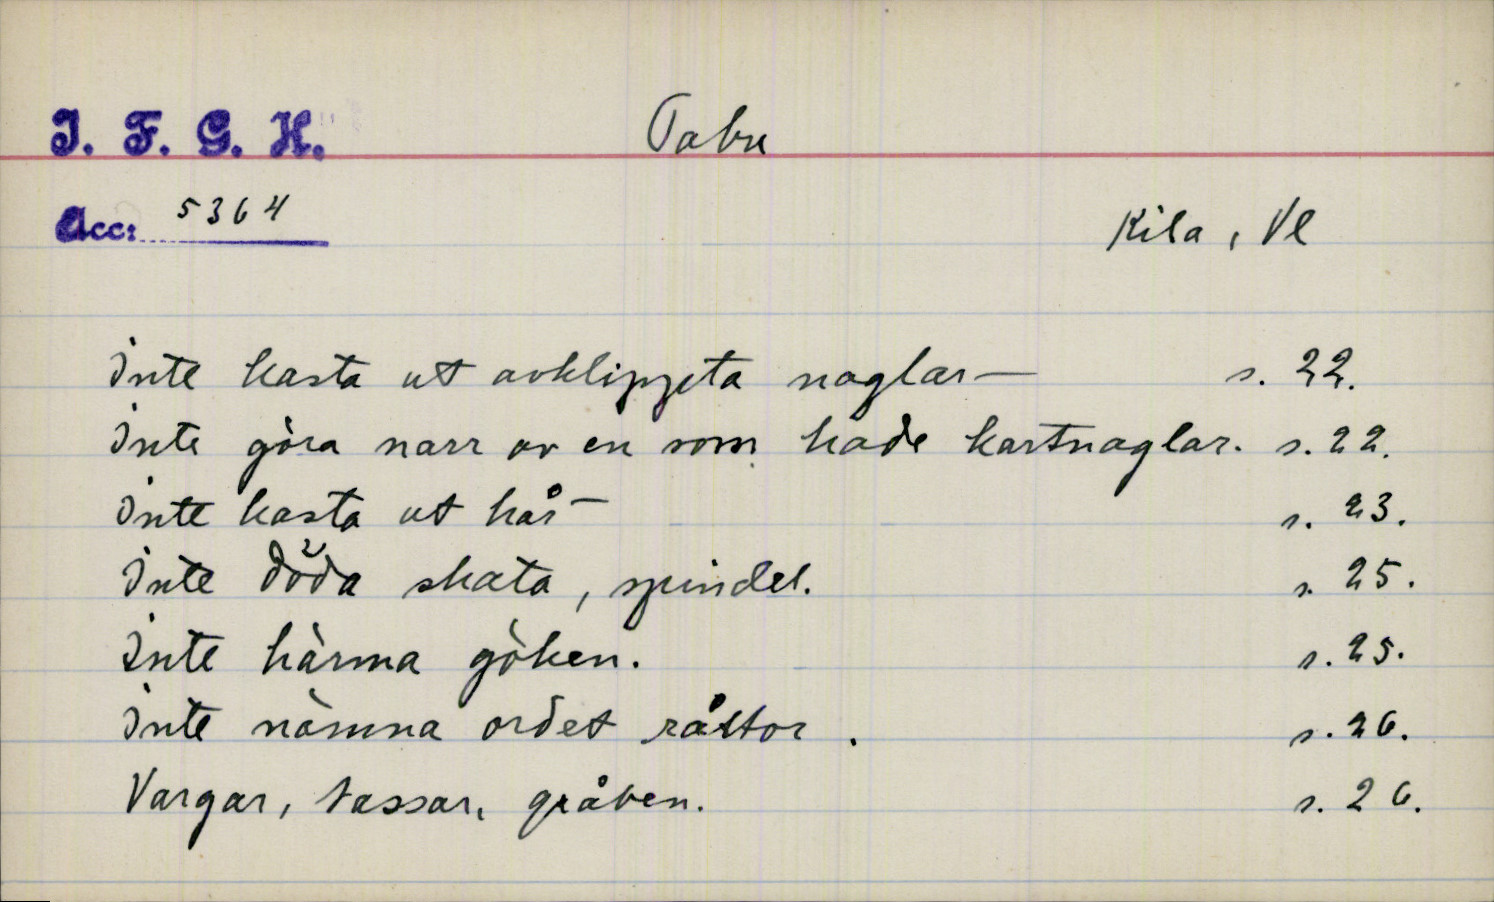 I. F. G. H.
Tabu
Acc: 5364
Kila, Vl
Inte kasta ut avklippta naglar — s. 22.
Inte göra narr av en som hade kartnaglar. s. 22.
Inte kasta ut hår — s. 23.
Inte döda skata, spindel. s. 25.
Inte härma göken. s. 25.
Inte nämna ordet råttor. s. 26.
Vargar, tassar, gråben. s. 26.